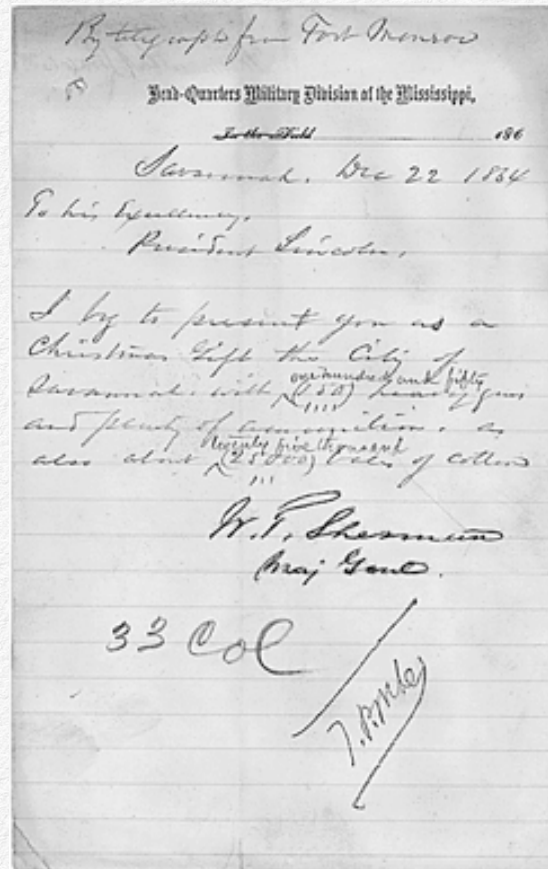 By telegraph from Fort Monroe
Head-Quarters Military Division of the Mississippi,
In the Field 186
Savannah, Dec 22 1864
To his Excellency,
President Lincoln,
I beg to present you as a
Christmas Gift the City of
one hundred and fifty
Savannah, with (150) heavy guns
and plenty of ammunition, as
twenty five thousand
also about (25000) bales of cotton
W. T. Sherman
Maj Genl.
33 Col